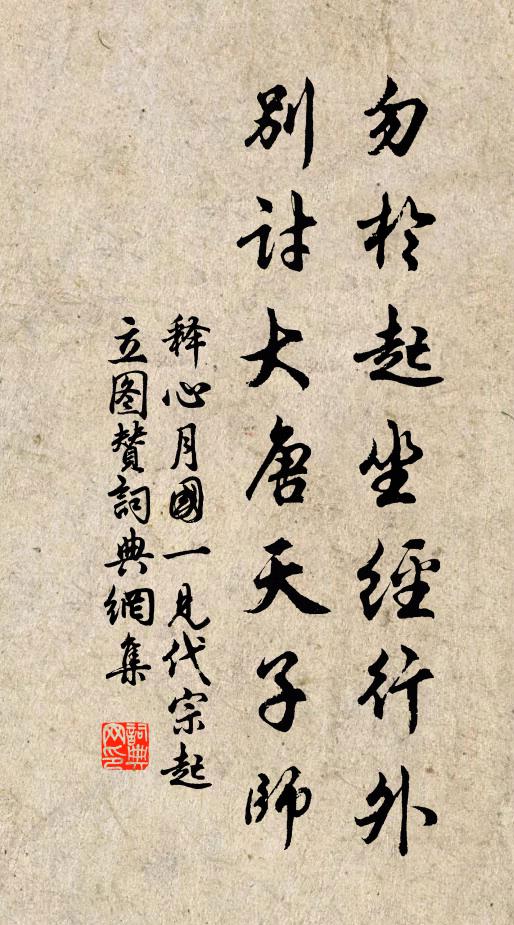 勿於起坐經行外
別討大唐天子師
释心月國一見代宗起
立图贊詞典網集
詞典網印